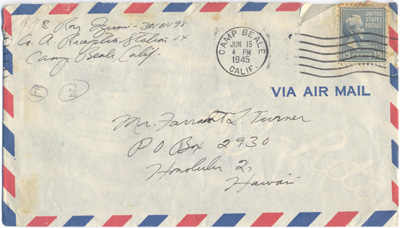 Ray
Co. A Reception Station
Camp Beale, Calif.
CAMP BEALE
JUN 15
4 PM
1945
CALIF.
UNITED STATES POSTAGE
15
VIA AIR MAIL
Mr. Farrant L. Turner
P O Box 2930
Honolulu 2,
Hawaii